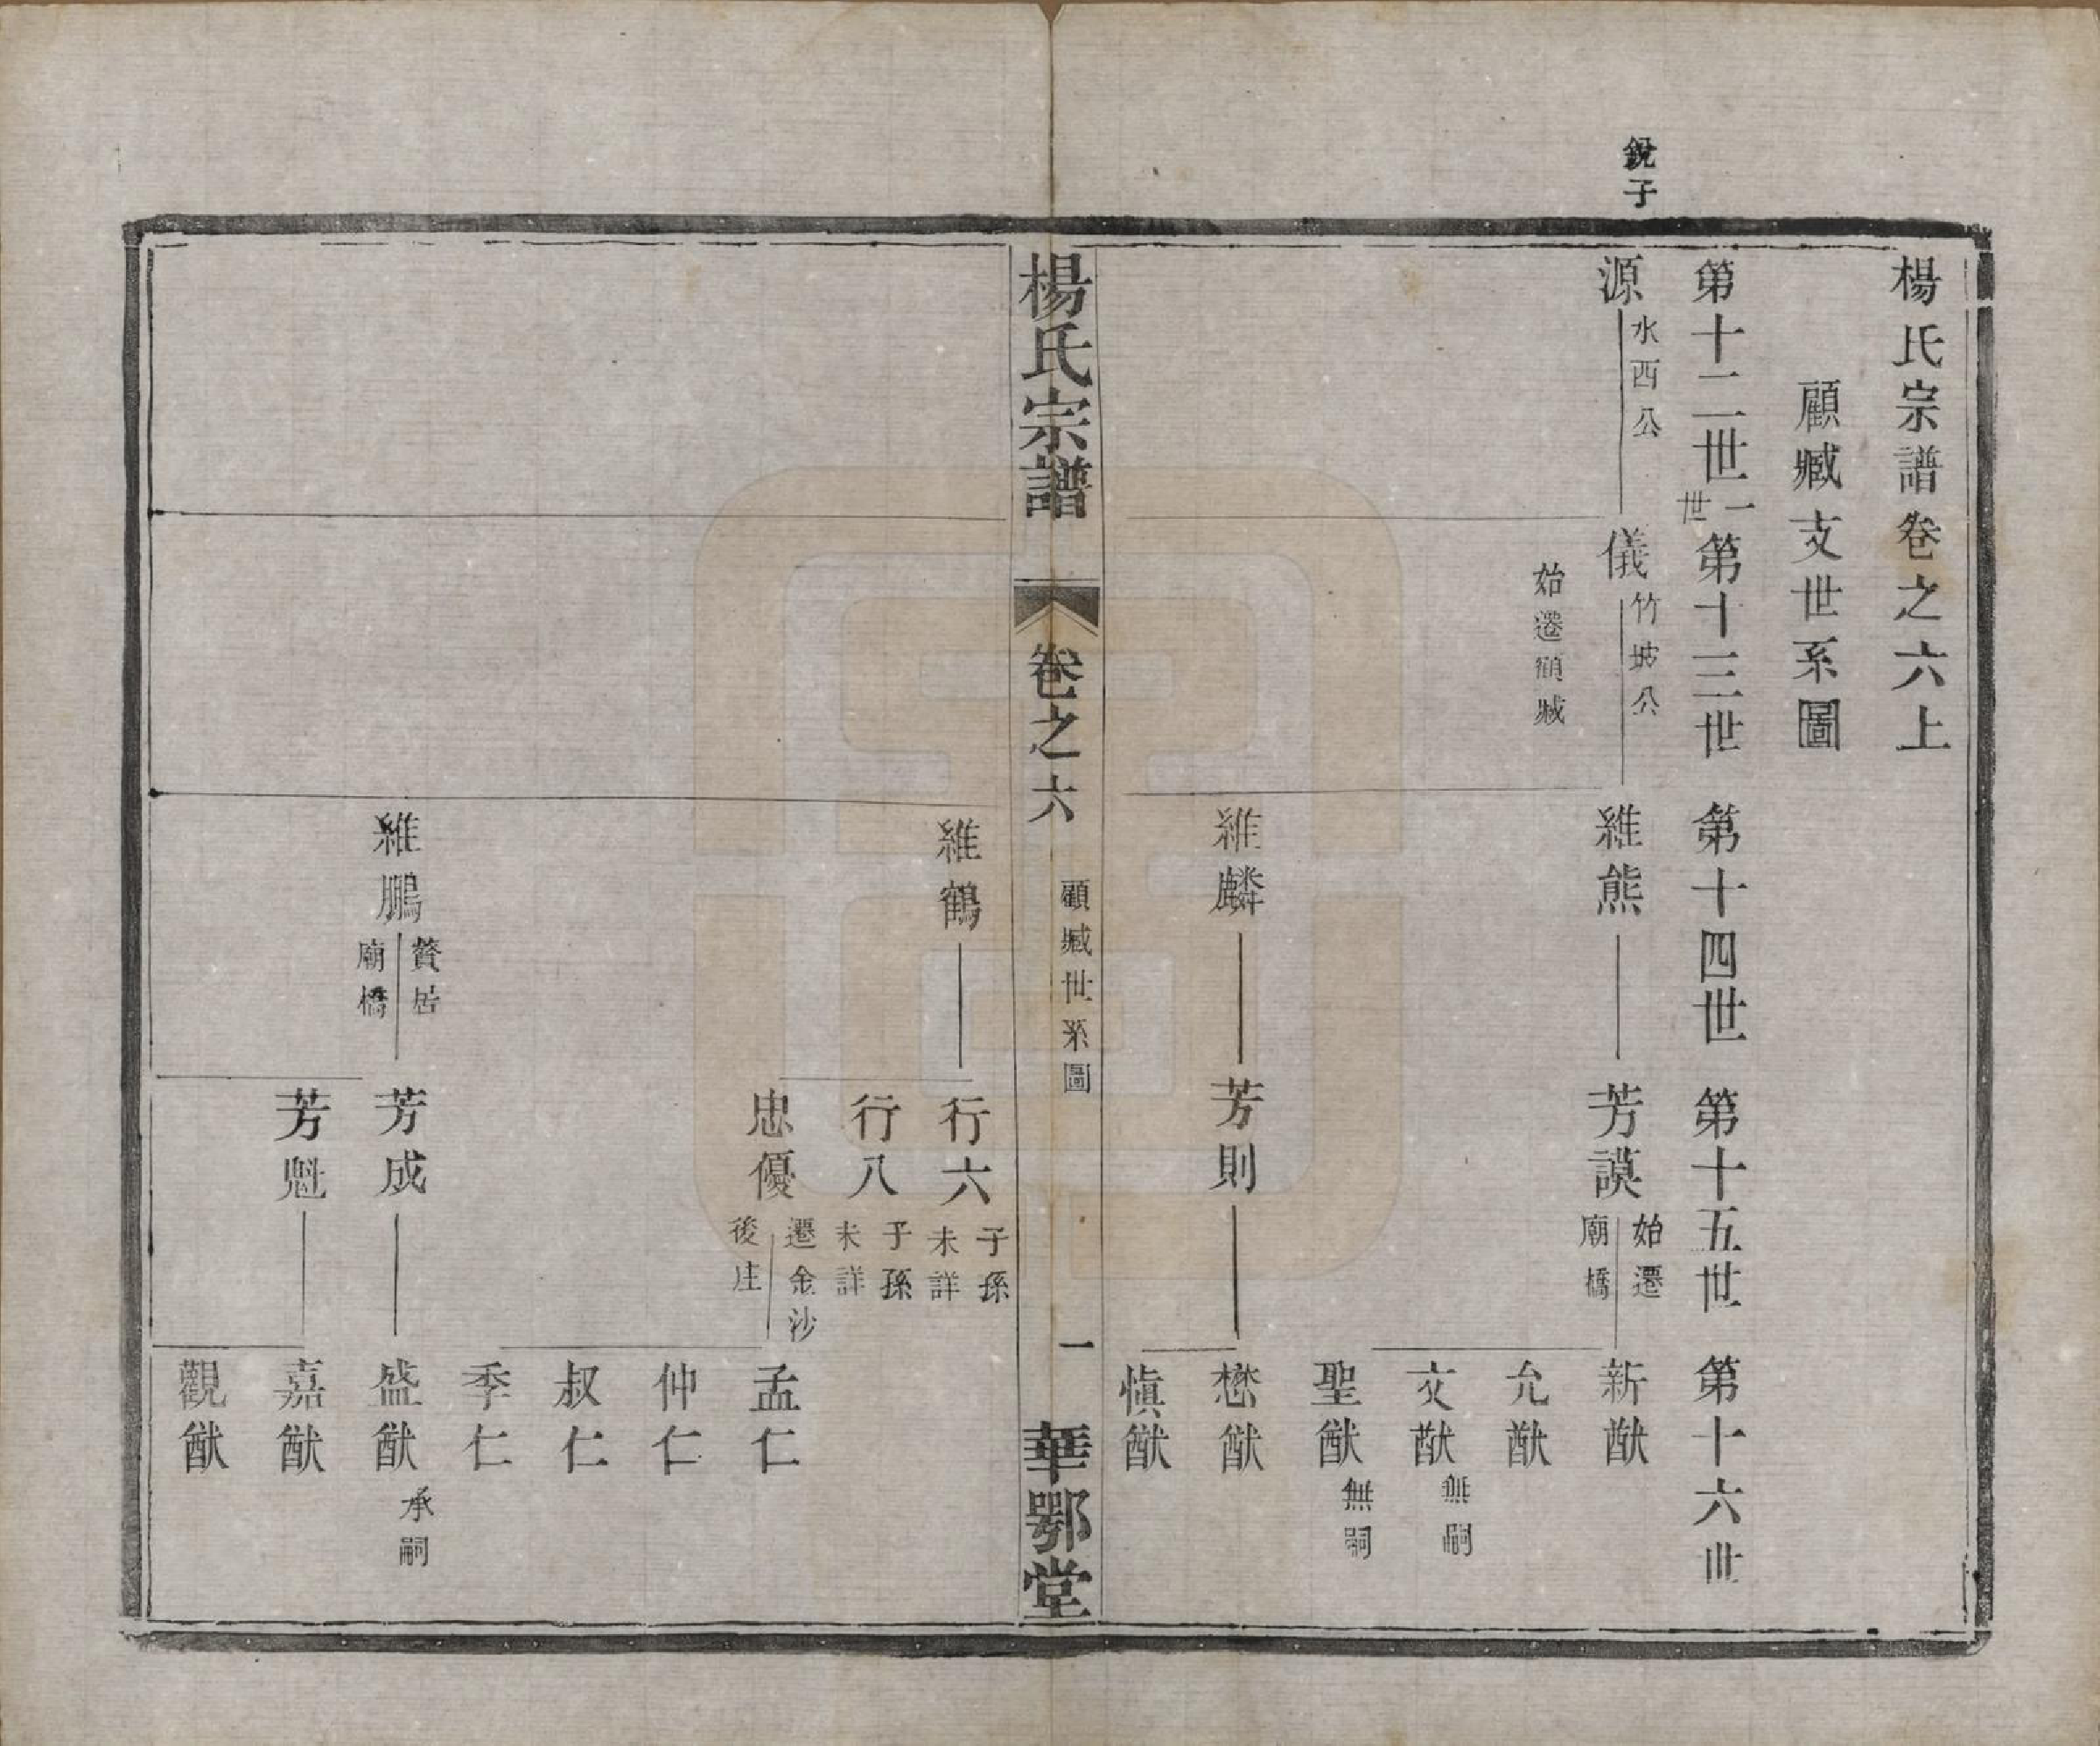 楊氏宗譜卷之六上
顧臧支世系圖
第十二世 一世 第十三世 第十四世 第十五世 第十六世
銳子
源 水西公 儀 竹坡公 維熊 芳謨 始遷廟橋 新猷
始遷顧臧
允猷
文猷 無嗣
聖猷 無嗣
維麟 芳則 懋猷
愼猷
楊氏宗譜 卷之六 顧臧世系圖 一 華鄂堂
維鶴 行六 子孫未詳
行八 子孫未詳
忠優 遷金沙後庄 孟仁
仲仁
叔仁
季仁
維鵬 贅居廟橋 芳成 盛猷 承嗣
芳魁 嘉猷
觀猷